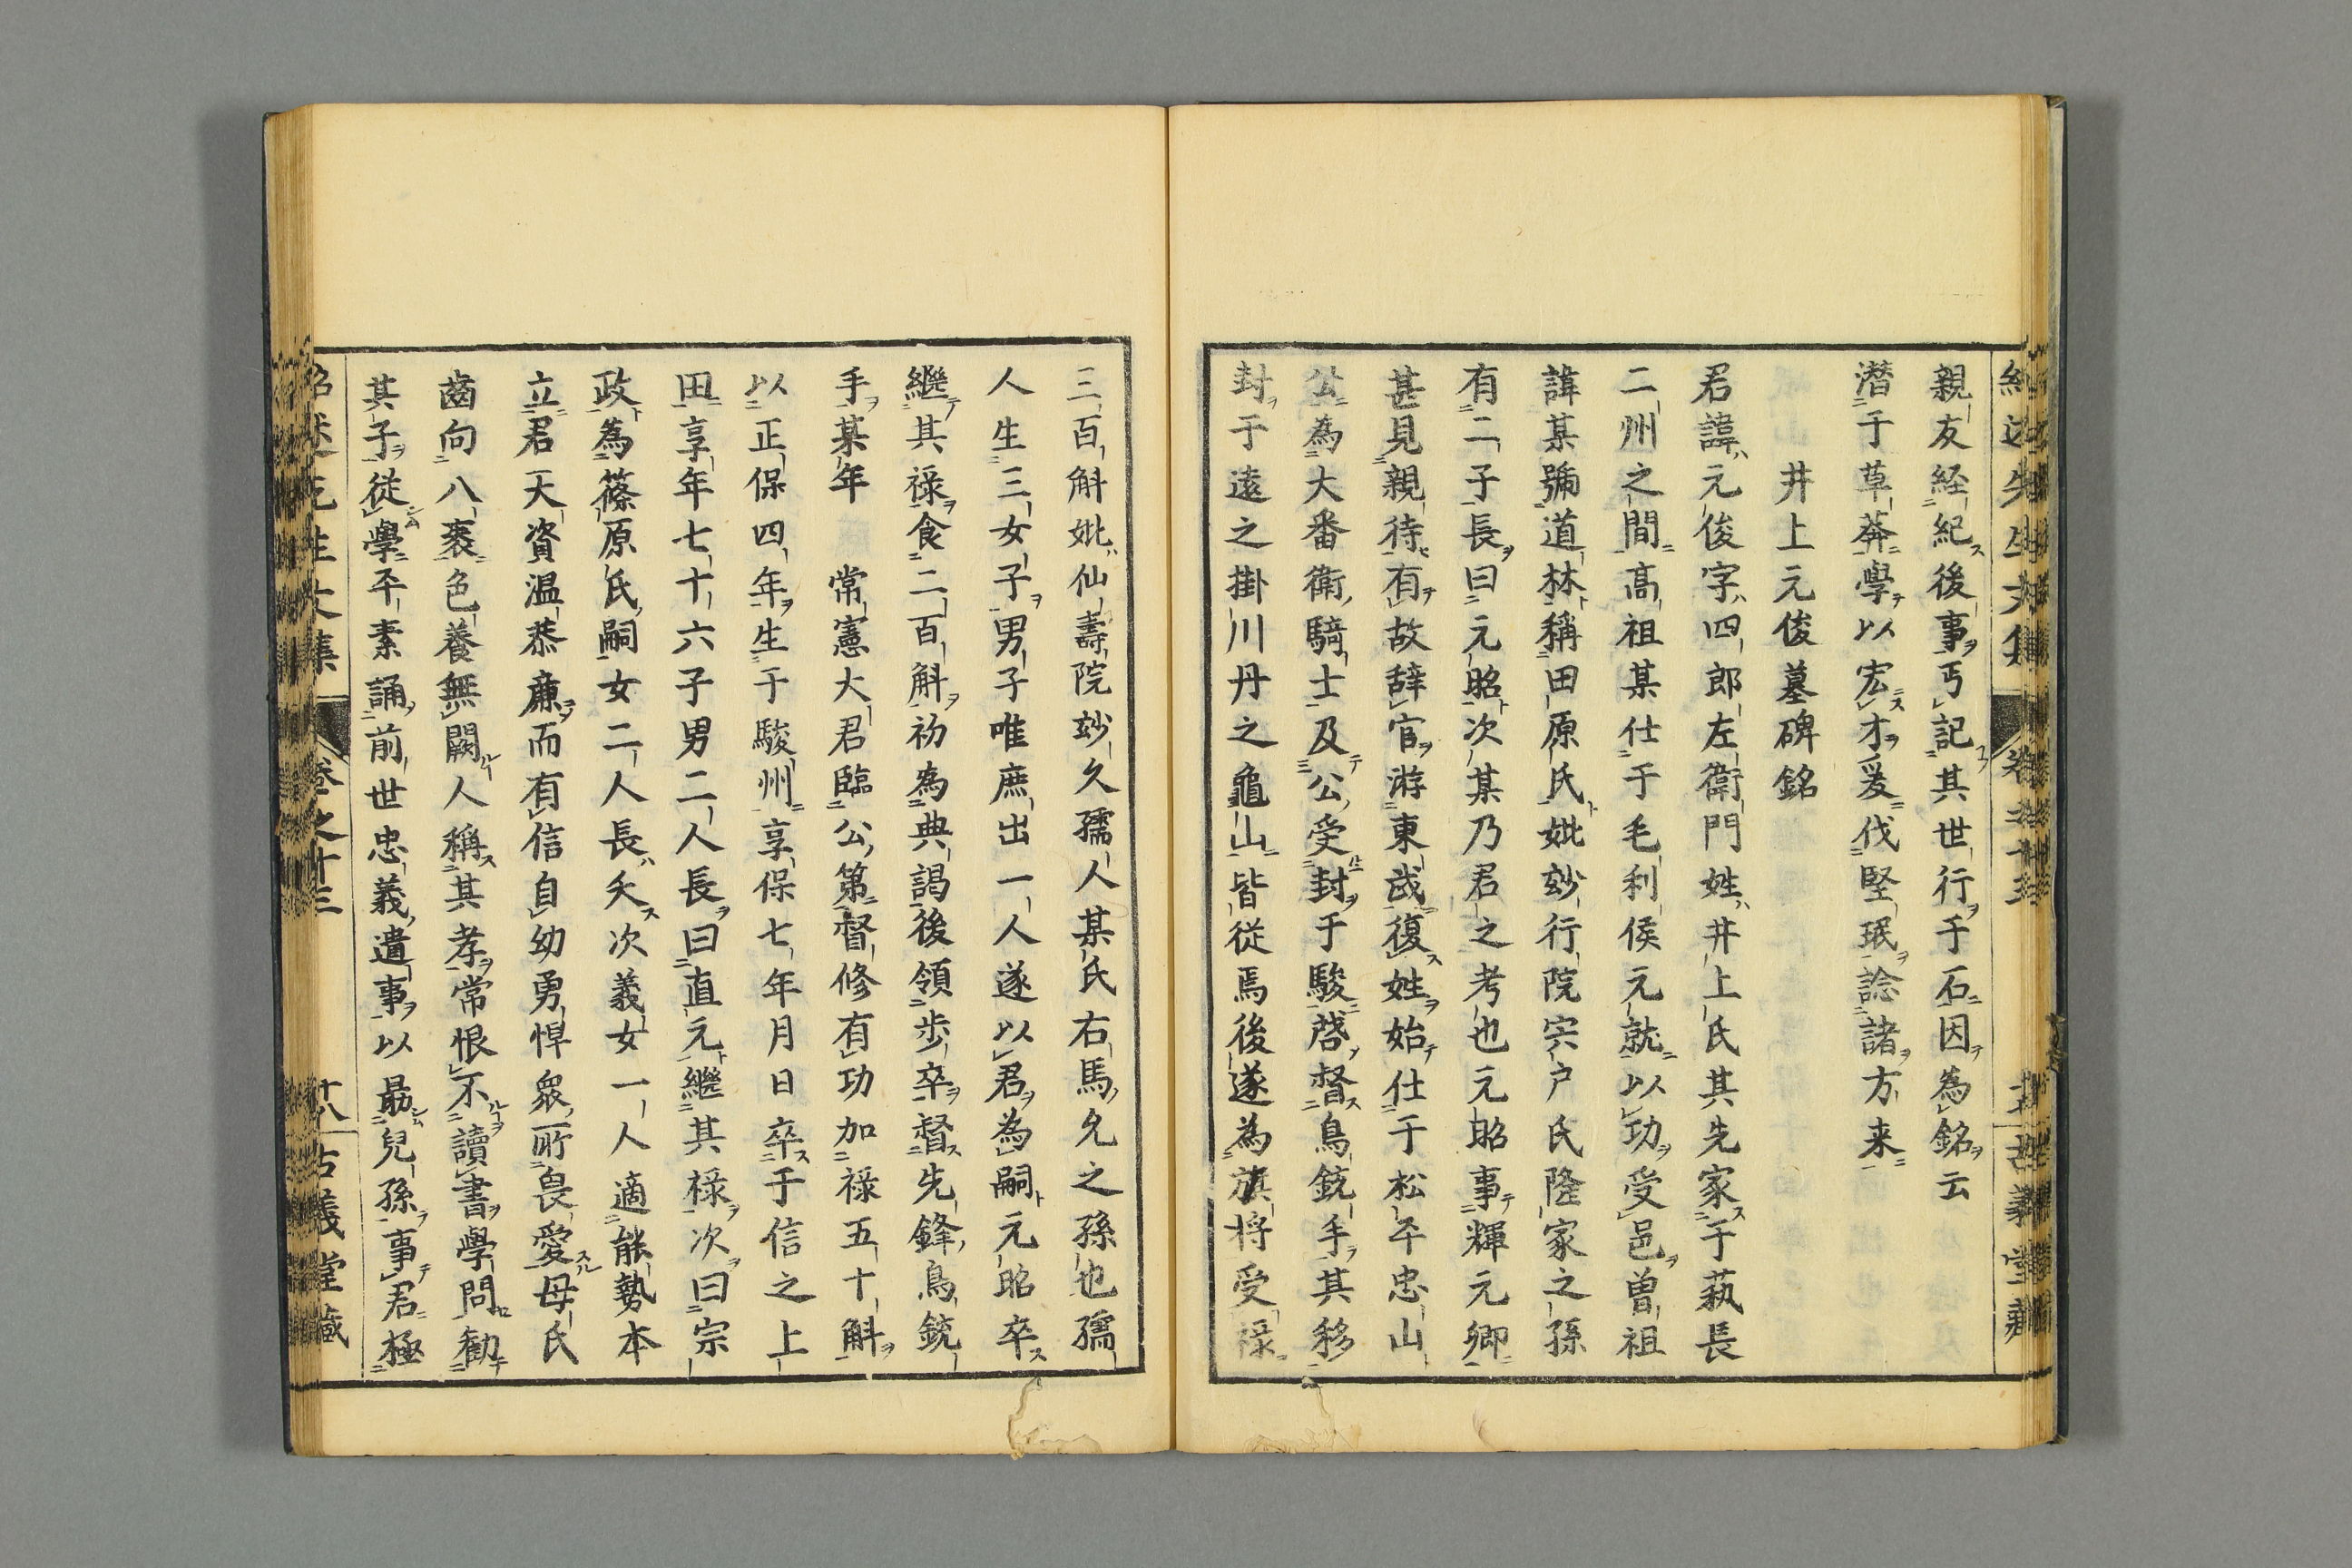 親友経紀後事丐記其世行于石因為銘云
潜于草莾學以宏才爰伐堅珉諗諸方来
井上元俊墓碑銘
君諱元俊字四郎左衛門姓井上氏其先家于萟長
二州之間高祖某仕于毛利侯元就以功受邑曽祖
諱某號道林稱田原氏妣玅行院宍戸氏隆家之孫
有二子長曰元昭次某乃君之考也元昭事輝元卿
甚見親待有故辞官游東武復姓始仕于松平忠山
公為大番衛騎士及公受封于駿啓督鳥銃手其移
封于遠之掛川丹之龜山皆従焉後遂為旗将受禄
三百斛妣仙壽院玅久孺人某氏右馬允之孫也孺
人生三女子男子唯庶出一人遂以君為嗣元昭卒
繼其禄食二百斛初為典謁後領歩卒督先鋒鳥銃
手某年常憲大君臨公第督修有功加禄五十斛
以正保四年生于駿州享保七年月日卒于信之上
田享年七十六子男二人長曰直元繼其禄次曰宗
政為篠原氏嗣女二人長夭次義女一人適能勢本
立君天資温恭廉而有信自幼勇悍衆所畏愛母氏
齒向八袠色養無闕人稱其孝常恨不讀書學問勸
其子従學平素誦前世忠義遺事以最兒孫事君極
紹述先生文集 卷之十三 十八 古義堂藏